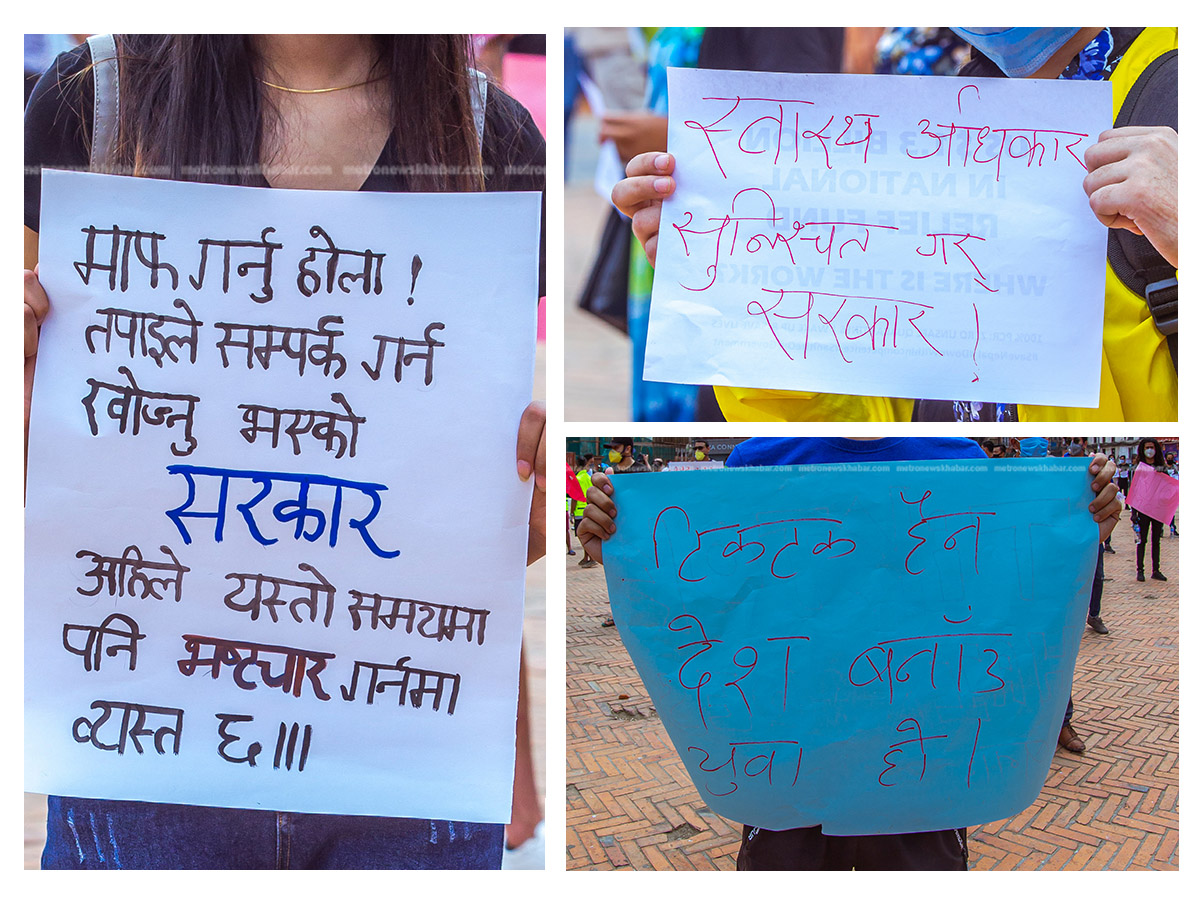 metronewskhabar.com
माफ गर्नु होला !
तपाइले सम्पर्क गर्न
खोज्नु भएको
सरकार
अहिले यस्तो समयमा
पनि भष्टचार गर्नमा
व्यस्त छ ।।।
स्वास्थ्य अधिकार
सुनिश्चत गर
सरकार !
IN NATIONAL
RELIEF FUND
WHERE IS THE WORK?
metronewskhabar.com metronewskhabar.com metronewskhabar.com
टिकटक हैन
देश बनाउँ
युवा हो ।